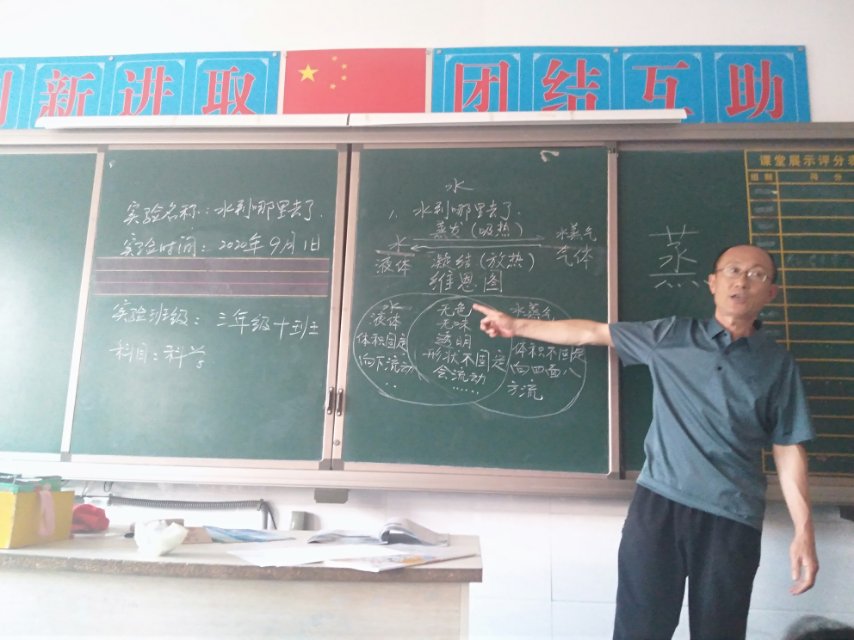 新进取
团结互助
实验名称:水到哪里去了.
实验时间:2020年9月1日
实验班级:三年级十班
科目:科学
水
1. 水到哪里去了
蒸发(吸热)
水 水蒸气
液体 凝结(放热) 气体
维恩图
水 无色 水蒸气
液体 无味
体积固定 透明 体积不固定
向下流动 形状不固定 向四面八
会流动 方流
…… ……
蒸
课堂展示评分表
组别 得分